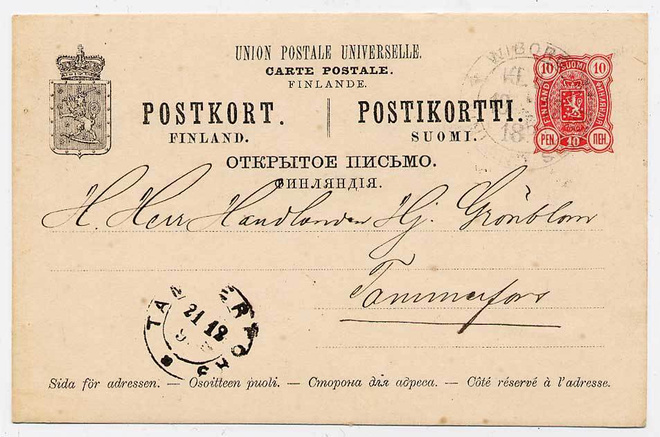 UNION POSTALE UNIVERSELLE.
CARTE POSTALE.
FINLANDE.
POSTKORT. POSTIKORTTI.
FINLAND. SUOMI.
ОТКРЫТОЕ ПИСЬМО.
ФИНЛЯНДІЯ.
WIBORG
KL
18
10 SUOMI 10
FINLAND ФИНЛЯНДІЯ
PEN. 10 ПЕН.
H. Herr Handlanden Hj. Grönblom
Tammerfors
TAMMERFORS
21 12
Sida för adressen. — Osoitteen puoli. — Сторона для адреса. — Côté réservé à l'adresse.